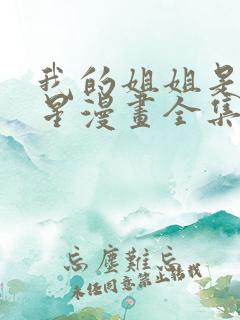 我的姐姐是
星漫畫全集
忘塵難忘
未经同意禁止转载